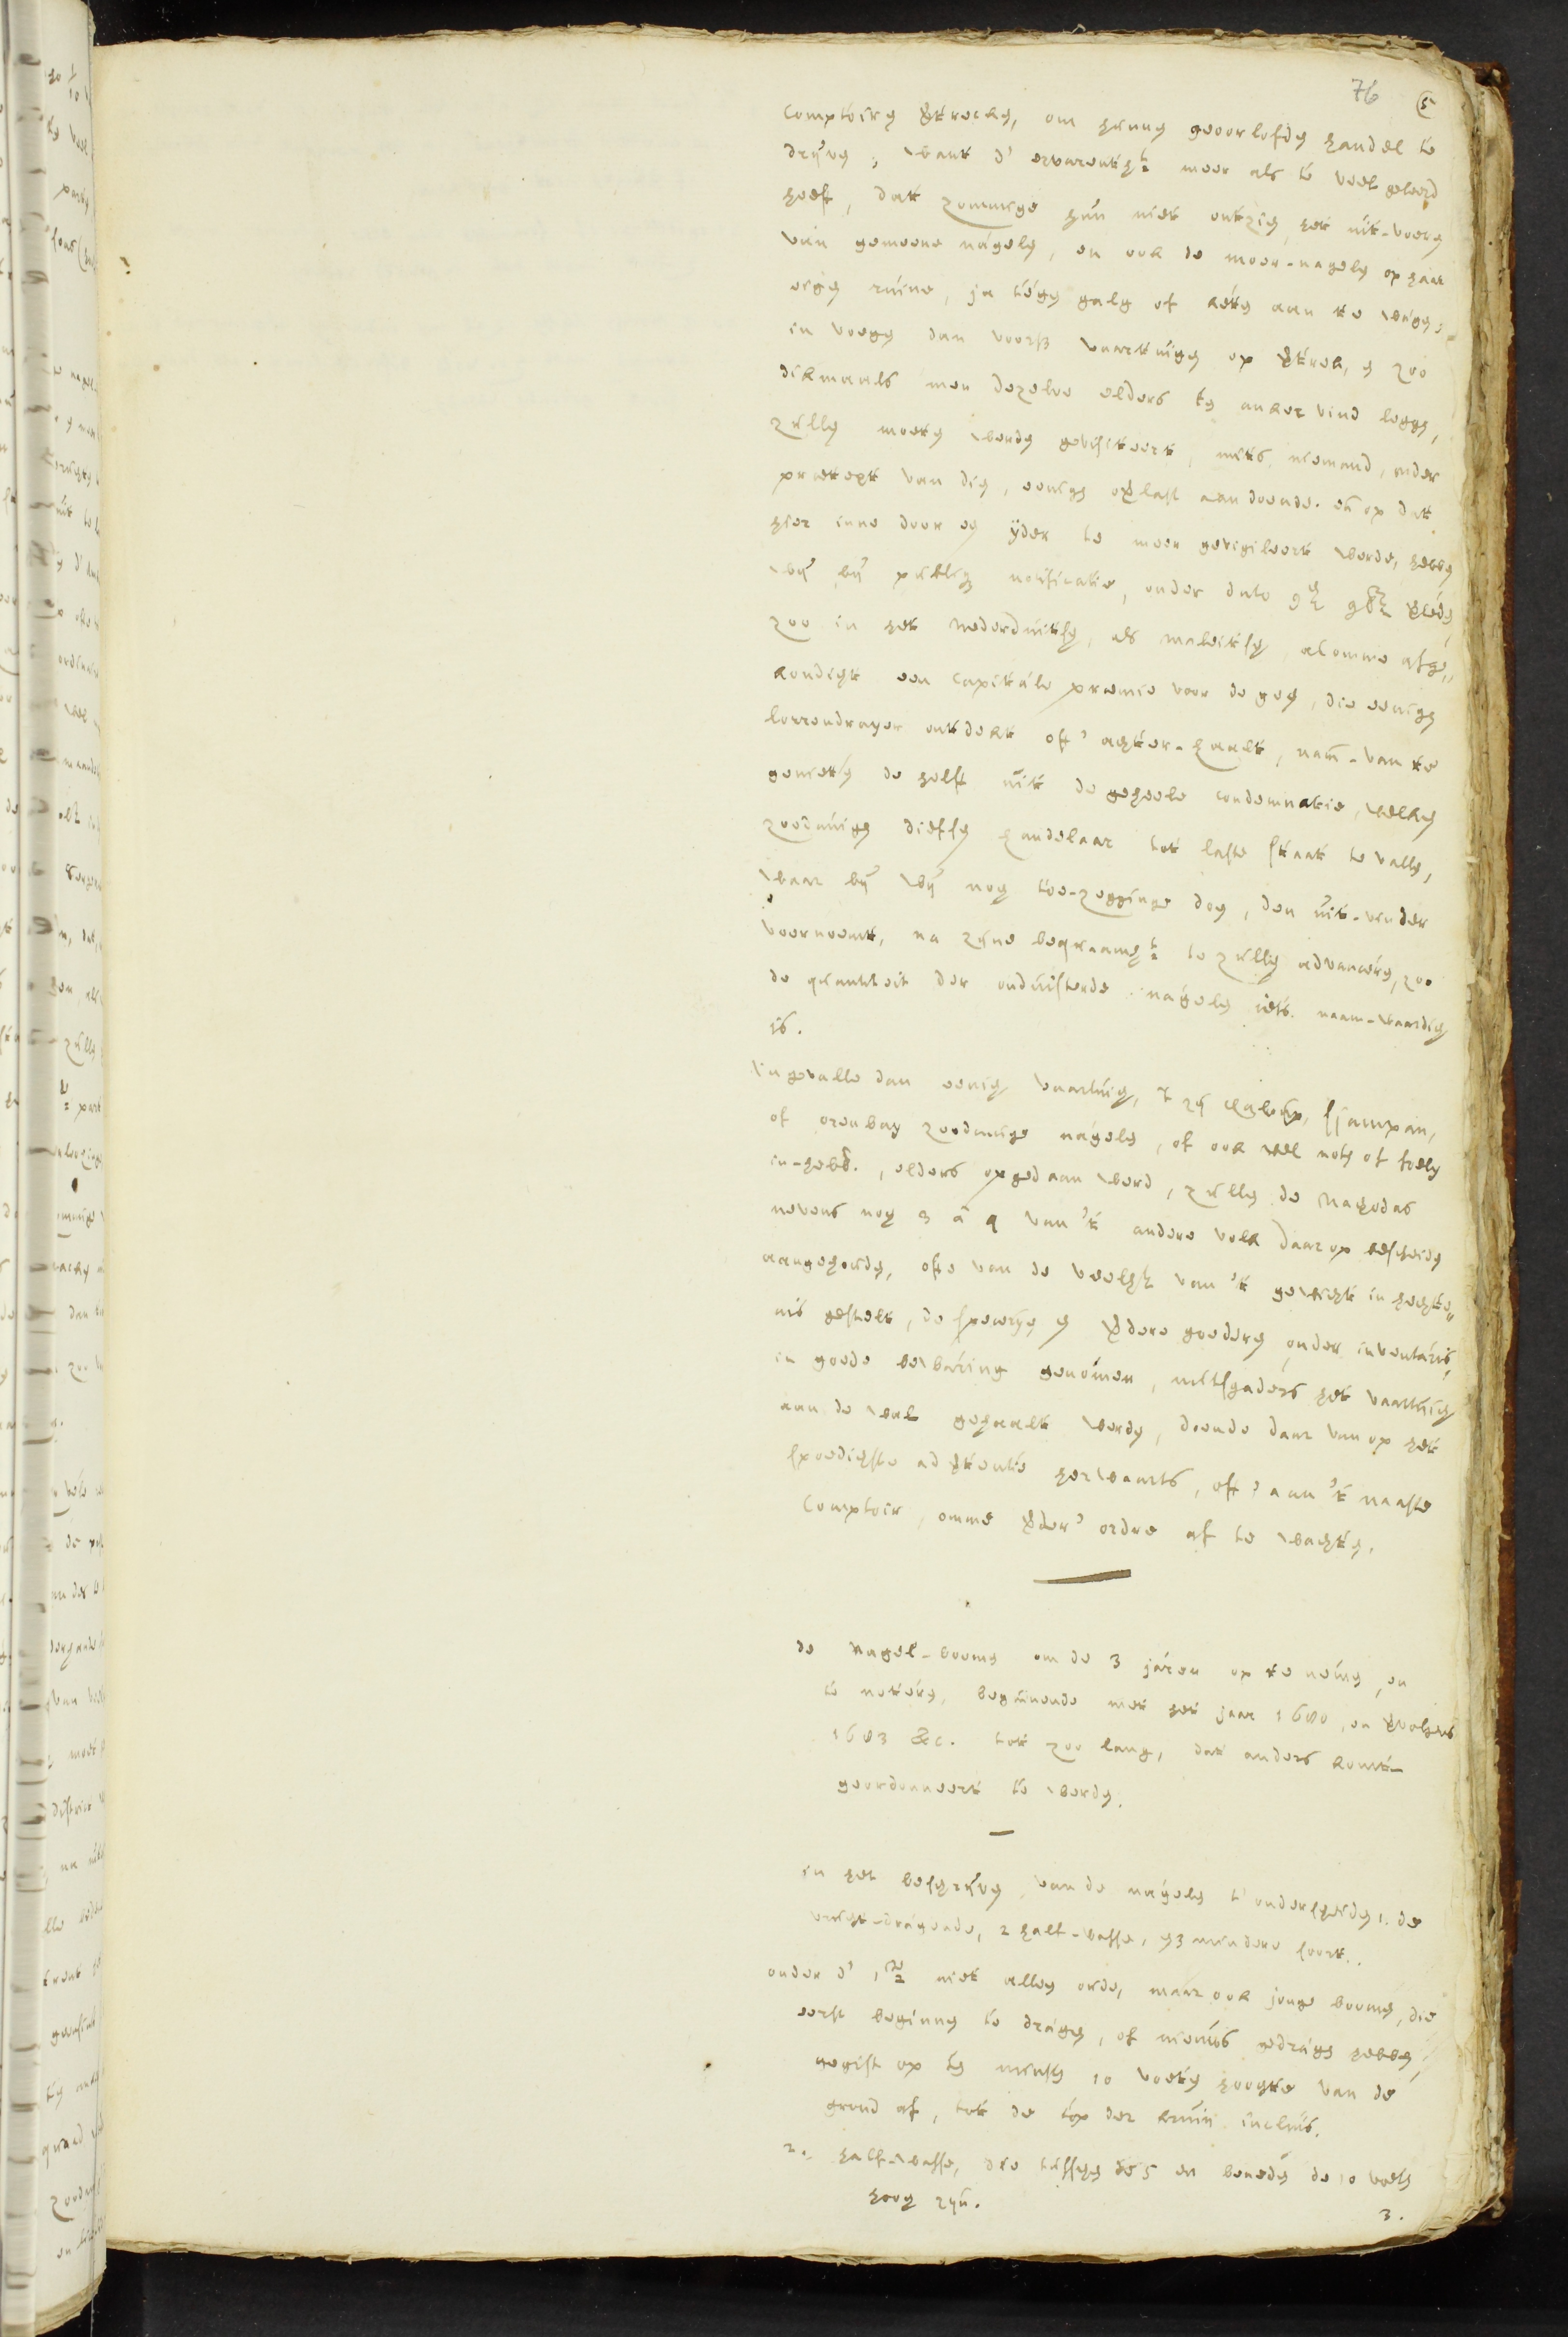 76 5
Comptoirẽ strecken, om hunne geoorlofden handel te
drijven; want d' ervarenth:t meer als te veel geleerd
heeft, dat zommige hun niet ontzien het uit-voeren
van gemeene nágelen, en ook de moer-nagelen op haar
eigen ruine, ja tégen galg of keten aan te wágen;
in voegen dan voorsz vaartuigen op strek, en zoo
dikmaals men dezelve elders ten anker vind leggen,
zullen moeten werden gevisiteert, mits niemand, onder
prætext van dien, eenigen oplast aandoende. en op dat
hier inne door en ijder te meer gevigileert werde, hebben
wij bij publicq notificatie, onder dato
zoo in het Nederduitsch, als maleitsch, alomme afge„
kondigt een capitále præmie voor de gene, die eenigen
lorrendrayer ontdekt oft' agter-haalt, nam.- van te
genieten de helft uit de geheele condemnatie, welken
zoodánigen diefsen handelaar tot laste staat te vallen,
waar bij wij nog toe-zegginge doen, den uit-vinder
voornoemt, na zijne bequaamh:t te zullen advanceren, zoo
de quantiteit der onduisterde nágelen iets naam-waardig
is.
Ingevalle dan eenig vaartuig, 't zij chaloup, sjampan,
of orenbay zoodanige nágelen, of ook wel noten of foely
in-hebb., elders opgedaan werd, zullen de Nachodas
nevens nog 3 â 4 van 't andere volk daar op bescheiden
aangehouden, ofte van de veelh:t van 't gewicht in hechte„
nis gestelt, de speceryen en andere goederen onder inventáris,
in goede bewáring genómen, mitsgaders het vaartuig
aan de wal gehaalt werden, doende daar van op het
spoedigste adstentie herwaarts, oft' aan 't naaste
Comptoir, omme ader' ordre af te wachten.
de Nagel-boomen om de 3 járen op te némen, en
te noteren, beginnende met het jaar 1680, en vervolgens
1683 &c. tot zoo lang, dat anders komt-
geordonneert te werden.
in het beschrijven van de nagelen t' onderscheiden 1. de
vrugt-drágende, 2 half-wasse, en 3 mindere soort..
onder d' 1:e niet alleen oude, maar ook jonge boomen, die
eerst beginnen te drágen, of nieuws gedrágen hebben,
gegist op ten minsten 10 voeten hoogte van de
grond af, tot de top der kruin incluis.
2. half-wasse, die tussen de 5 en beneden de 10 voeten
hoog zijn.
3.